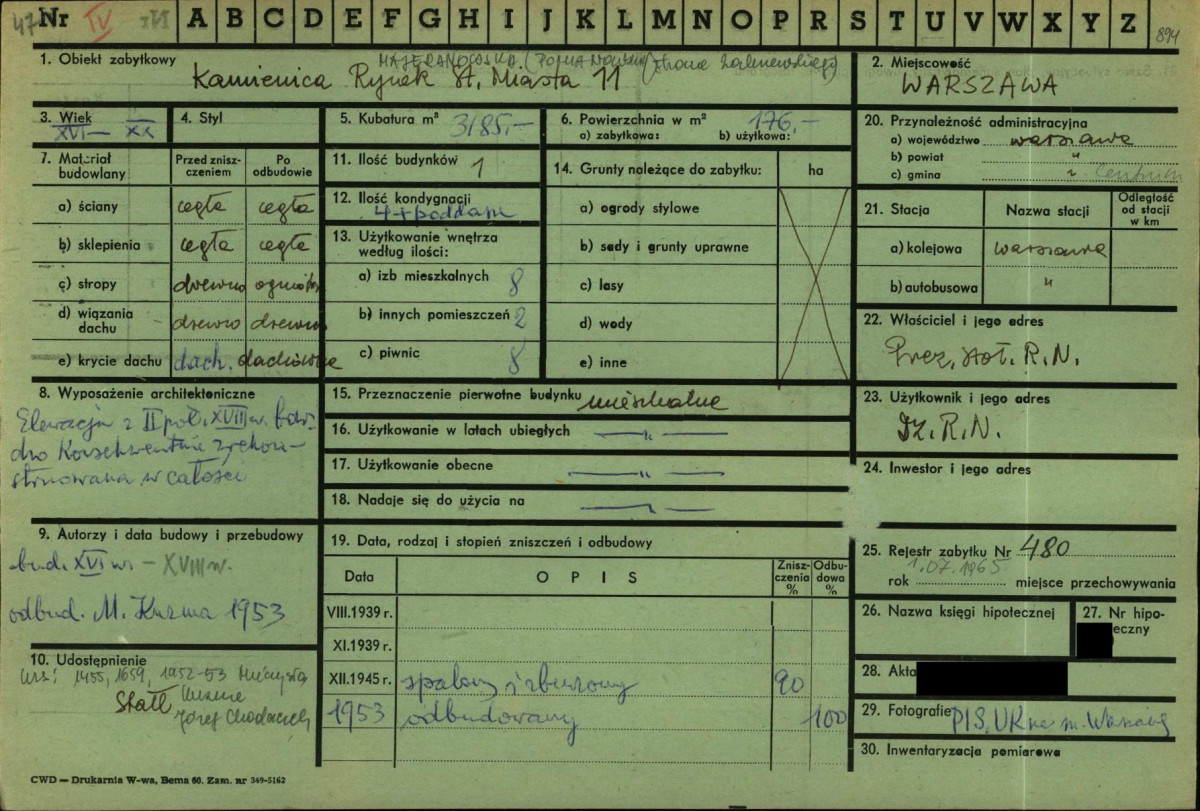 47 Nr IV A B C D E F G H I J K L M N O P R S T U V W X Y Z 894
1. Obiekt zabytkowy
Kamienica Rynek St. Miasta 11
2. Miejscowość
WARSZAWA
3. Wiek
XVI — XX
4. Styl
5. Kubatura m³ 3185,—
6. Powierzchnia w m² 176,—
a) zabytkowa: b) użytkowa:
20. Przynależność administracyjna
a) województwo warszawa
b) powiat "
c) gmina " Centrum
7. Materiał budowlany
Przed zniszczeniem
Po odbudowie
a) ściany cegła cegła
b) sklepienia cegła cegła
c) stropy drewno
d) wiązania dachu drewno drewno
e) krycie dachu dach. dachówka
11. Ilość budynków 1
12. Ilość kondygnacji
4 + poddasze
13. Użytkowanie wnętrza
według ilości:
a) izb mieszkalnych 8
b) innych pomieszczeń 2
c) piwnic 8
14. Grunty należące do zabytku: ha
a) ogrody stylowe
b) sady i grunty uprawne
c) lasy
d) wody
e) inne
21. Stacja Nazwa stacji Odległość od stacji w km
a) kolejowa warszawa
b) autobusowa "
22. Właściciel i jego adres
Prez. Stoł. R.N.
8. Wyposażenie architektoniczne
Elewacja z II poł. XVII w. bar-
dzo konsekwentnie zrekon-
struowana w całości
15. Przeznaczenie pierwotne budynku mieszkalne
16. Użytkowanie w latach ubiegłych — " —
17. Użytkowanie obecne — " —
18. Nadaje się do użycia na — " —
23. Użytkownik i jego adres
Dz. R.N.
24. Inwestor i jego adres
9. Autorzy i data budowy i przebudowy
bud. XVI w. — XVIII w.
odbud. M. Kuzma 1953
19. Data, rodzaj i stopień zniszczeń i odbudowy
Data O P I S Zniszczenia % Odbudowa %
VIII.1939 r.
XI.1939 r.
XII.1945 r. spalony i zburzony 90
1953 odbudowany 100
25. Rejestr zabytku Nr 480
1.07.1965
rok miejsce przechowywania
26. Nazwa księgi hipotecznej
27. Nr hipo-
eczny
10. Udostępnienie
1455, 1659, 1952-53
Kuzma
Józef Chodaczek
28. Akta
29. Fotografie
30. Inwentaryzacja pomiarowa
CWD — Drukarnia W-wa, Bema 60. Zam. nr 349-5162